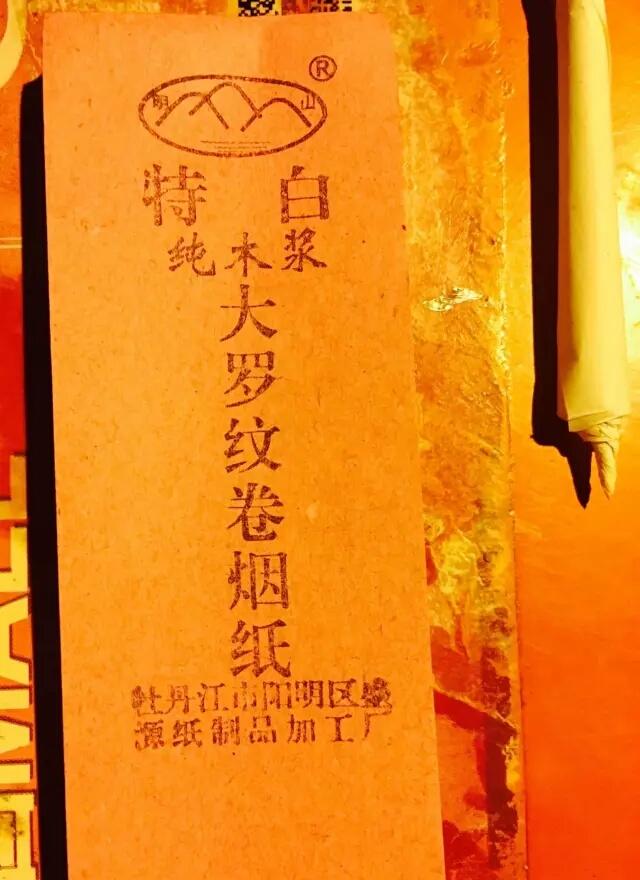 ®
山
特 白
纯木浆
大罗纹卷烟纸
牡丹江市阳明区盛
源纸制品加工厂